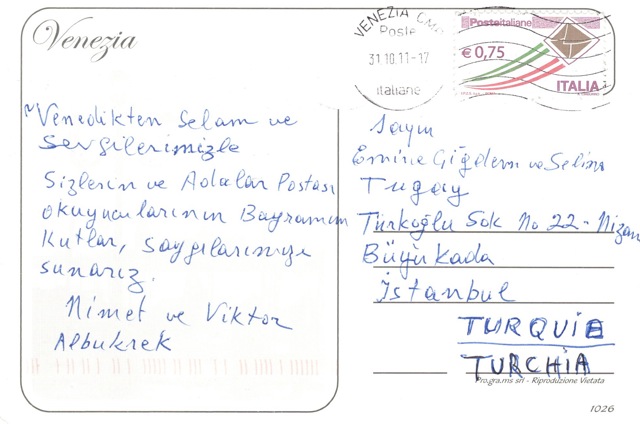 Venezia
VENEZIA CMP
Poste
31.10.11-17
italiane
Posteitaliane
€ 0,75
ITALIA
Venedikten Selam ve
Sevgilerimizle
Sizlerin ve Adalar Postası
okuyucularının Bayramını
kutlar, saygılarımızı
sunarız.
Nimet ve Viktor
Albukrek
Sayın
Emine Çiğdem ve Selim
Tugay
Türkoğlu Sok No 22 - Nizam
Büyükada
İstanbul
TURQUIE
TURCHIA
Pro.gra.ms srl - Riproduzione Vietata
1026